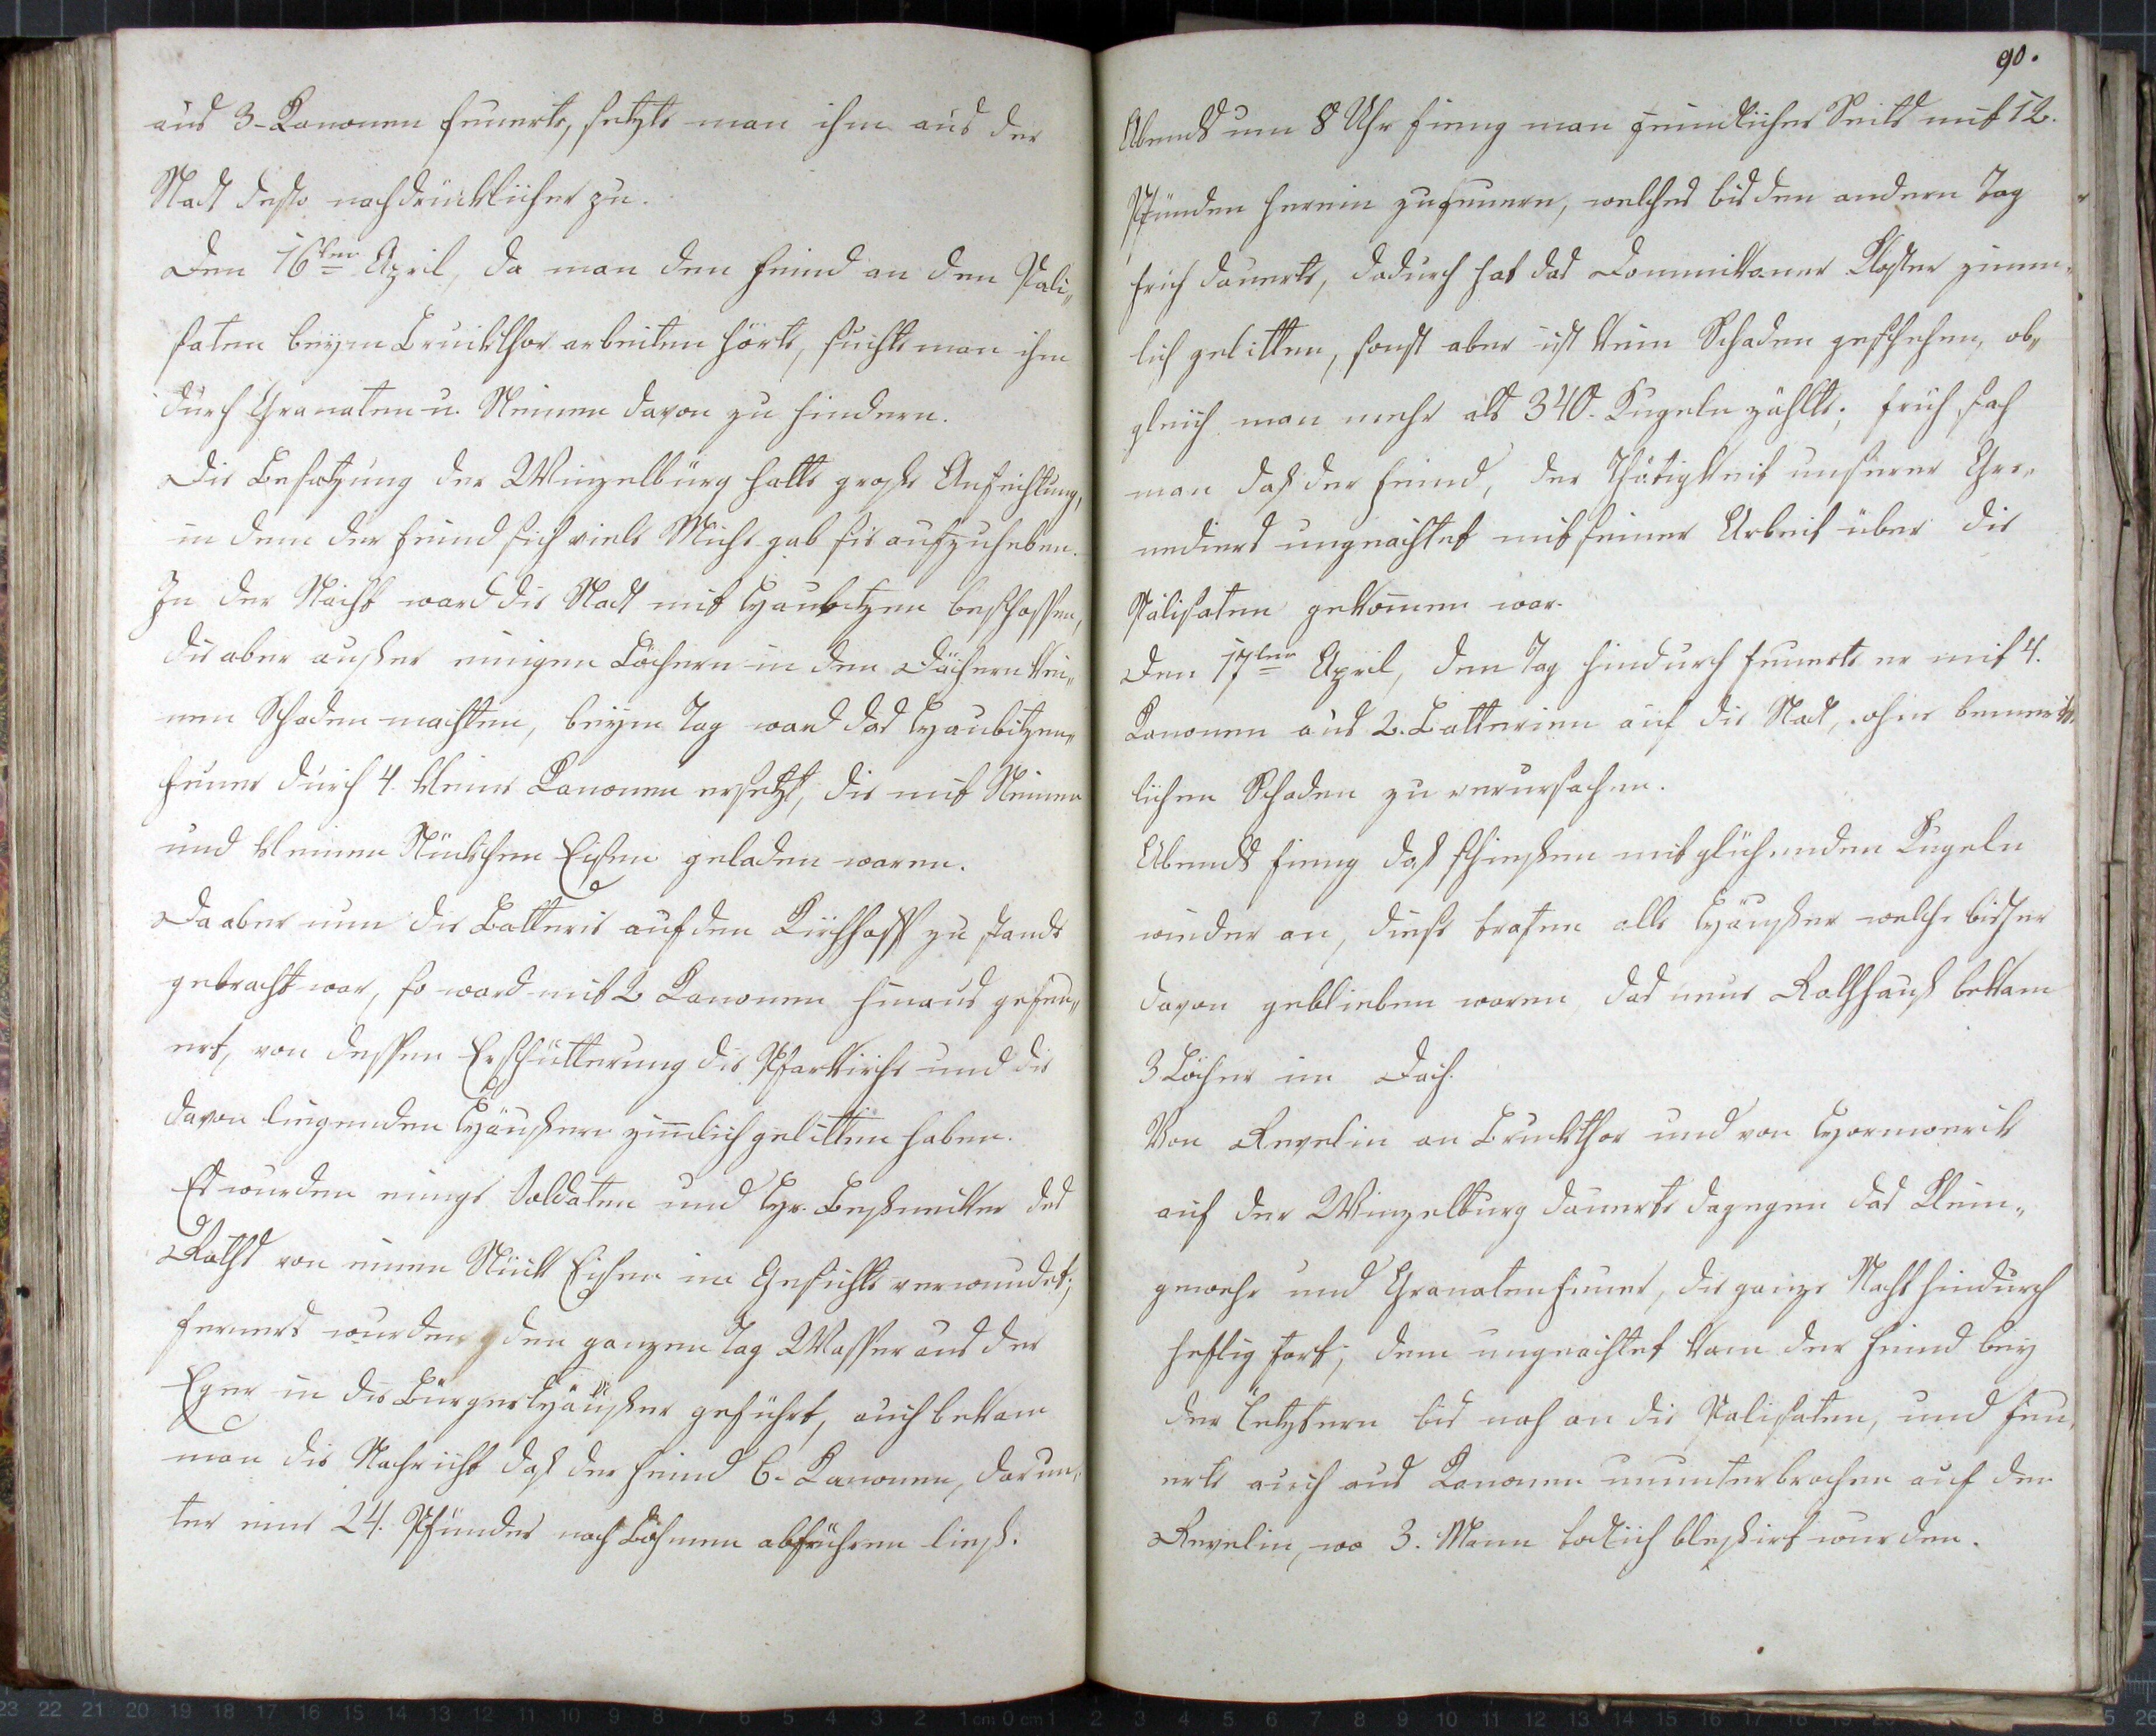 aus 3 Kanonen feuerte, setzte man ihm aus der
Stadt desto nachdrücklicher zu.
Den 16ten April, da man den Feind an den Pali„
saten beym Bruckthor arbeiten hörte, suchte man ihn
durch Granaten u. Steinen davon zu hindern.
Die Besatzung der Winzelburg hatte große Anfechtung,
in dem der Feind sich viele Mühe gab sie aufzuheben.
In der Nacht ward die Stadt mit Haubitzen beschossen,
die aber außer einigen Löchern in den Dächern kei„
nen Schaden machten, beym Tag ward das Haubitzen„
feuer durch 4. kleine Kanonen ersetzt, die mit Steinen
und kleinen Stückchen Eisen geladen waren.
Da aber nun die Batterie auf den Kirchhoff zu stande
gebracht war, so ward mit 2 Kanonen hinaus gefeu„
ert, von dessen Erschütterung die Pfarkirche und die
davon liegenden Häußern zimlich gelitten haben.
Es wurden einige Soldaten und Hr. Beßnecker des
Raths von einen Stück Eisen im Gesichte verwundet;
ferners wurden den ganzen Tag Wasser aus der
Eger in die Bürgers Häußer geführt, auch bekam
man die Nachricht daß der Feind 6. Kanonen, darun„
ter eine 24. Pfünder nach Böhmen abführen ließ.
90.
Abends um 8 Uhr fieng man feindlicher Seits mit 12.
Pfünden herein zu feuern, welches bis den andern Tag
früh dauerte, dadurch hat das Dominikaner Kloster ziem„
lich gelitten, sonst aber ist kein Schaden geschehen, ob„
gleich man mehr als 340. Kugeln zählte; früh sah
man daß der Feind, der Thätigkeit unserer Gre„
nediers ungeachtet mit seiner Arbeit über die
Palisaten gekommen war.
Den 17ten April, den Tag hindurch feuerte er mit 4.
Kanonen aus 2. Batterien auf die Stadt, ohne bemerk„
lichen Schaden zu verursachen.
Abends fieng daß schießen mit glühenden Kugeln
wieder an, diese trafen alle Häußer welche bisher
davon geblieben waren, das neue Rathhauß bekam
3 Löcher im Dach.
Von Revelin an Bruckthor und von Hornwerk
auf der Winzelburg dauerte dagegen das Klein„
gewehr und Granatenfeuer, die ganze Nacht hindurch
heftig fort, dem ungeachtet kam der Feind bey
der Letztern bis nah an die Palisaten, und feu„
erte auch aus Kanonen ununterbrochen auf den
Revelin, wo 3. Mann tödlich bleßirt wurden.